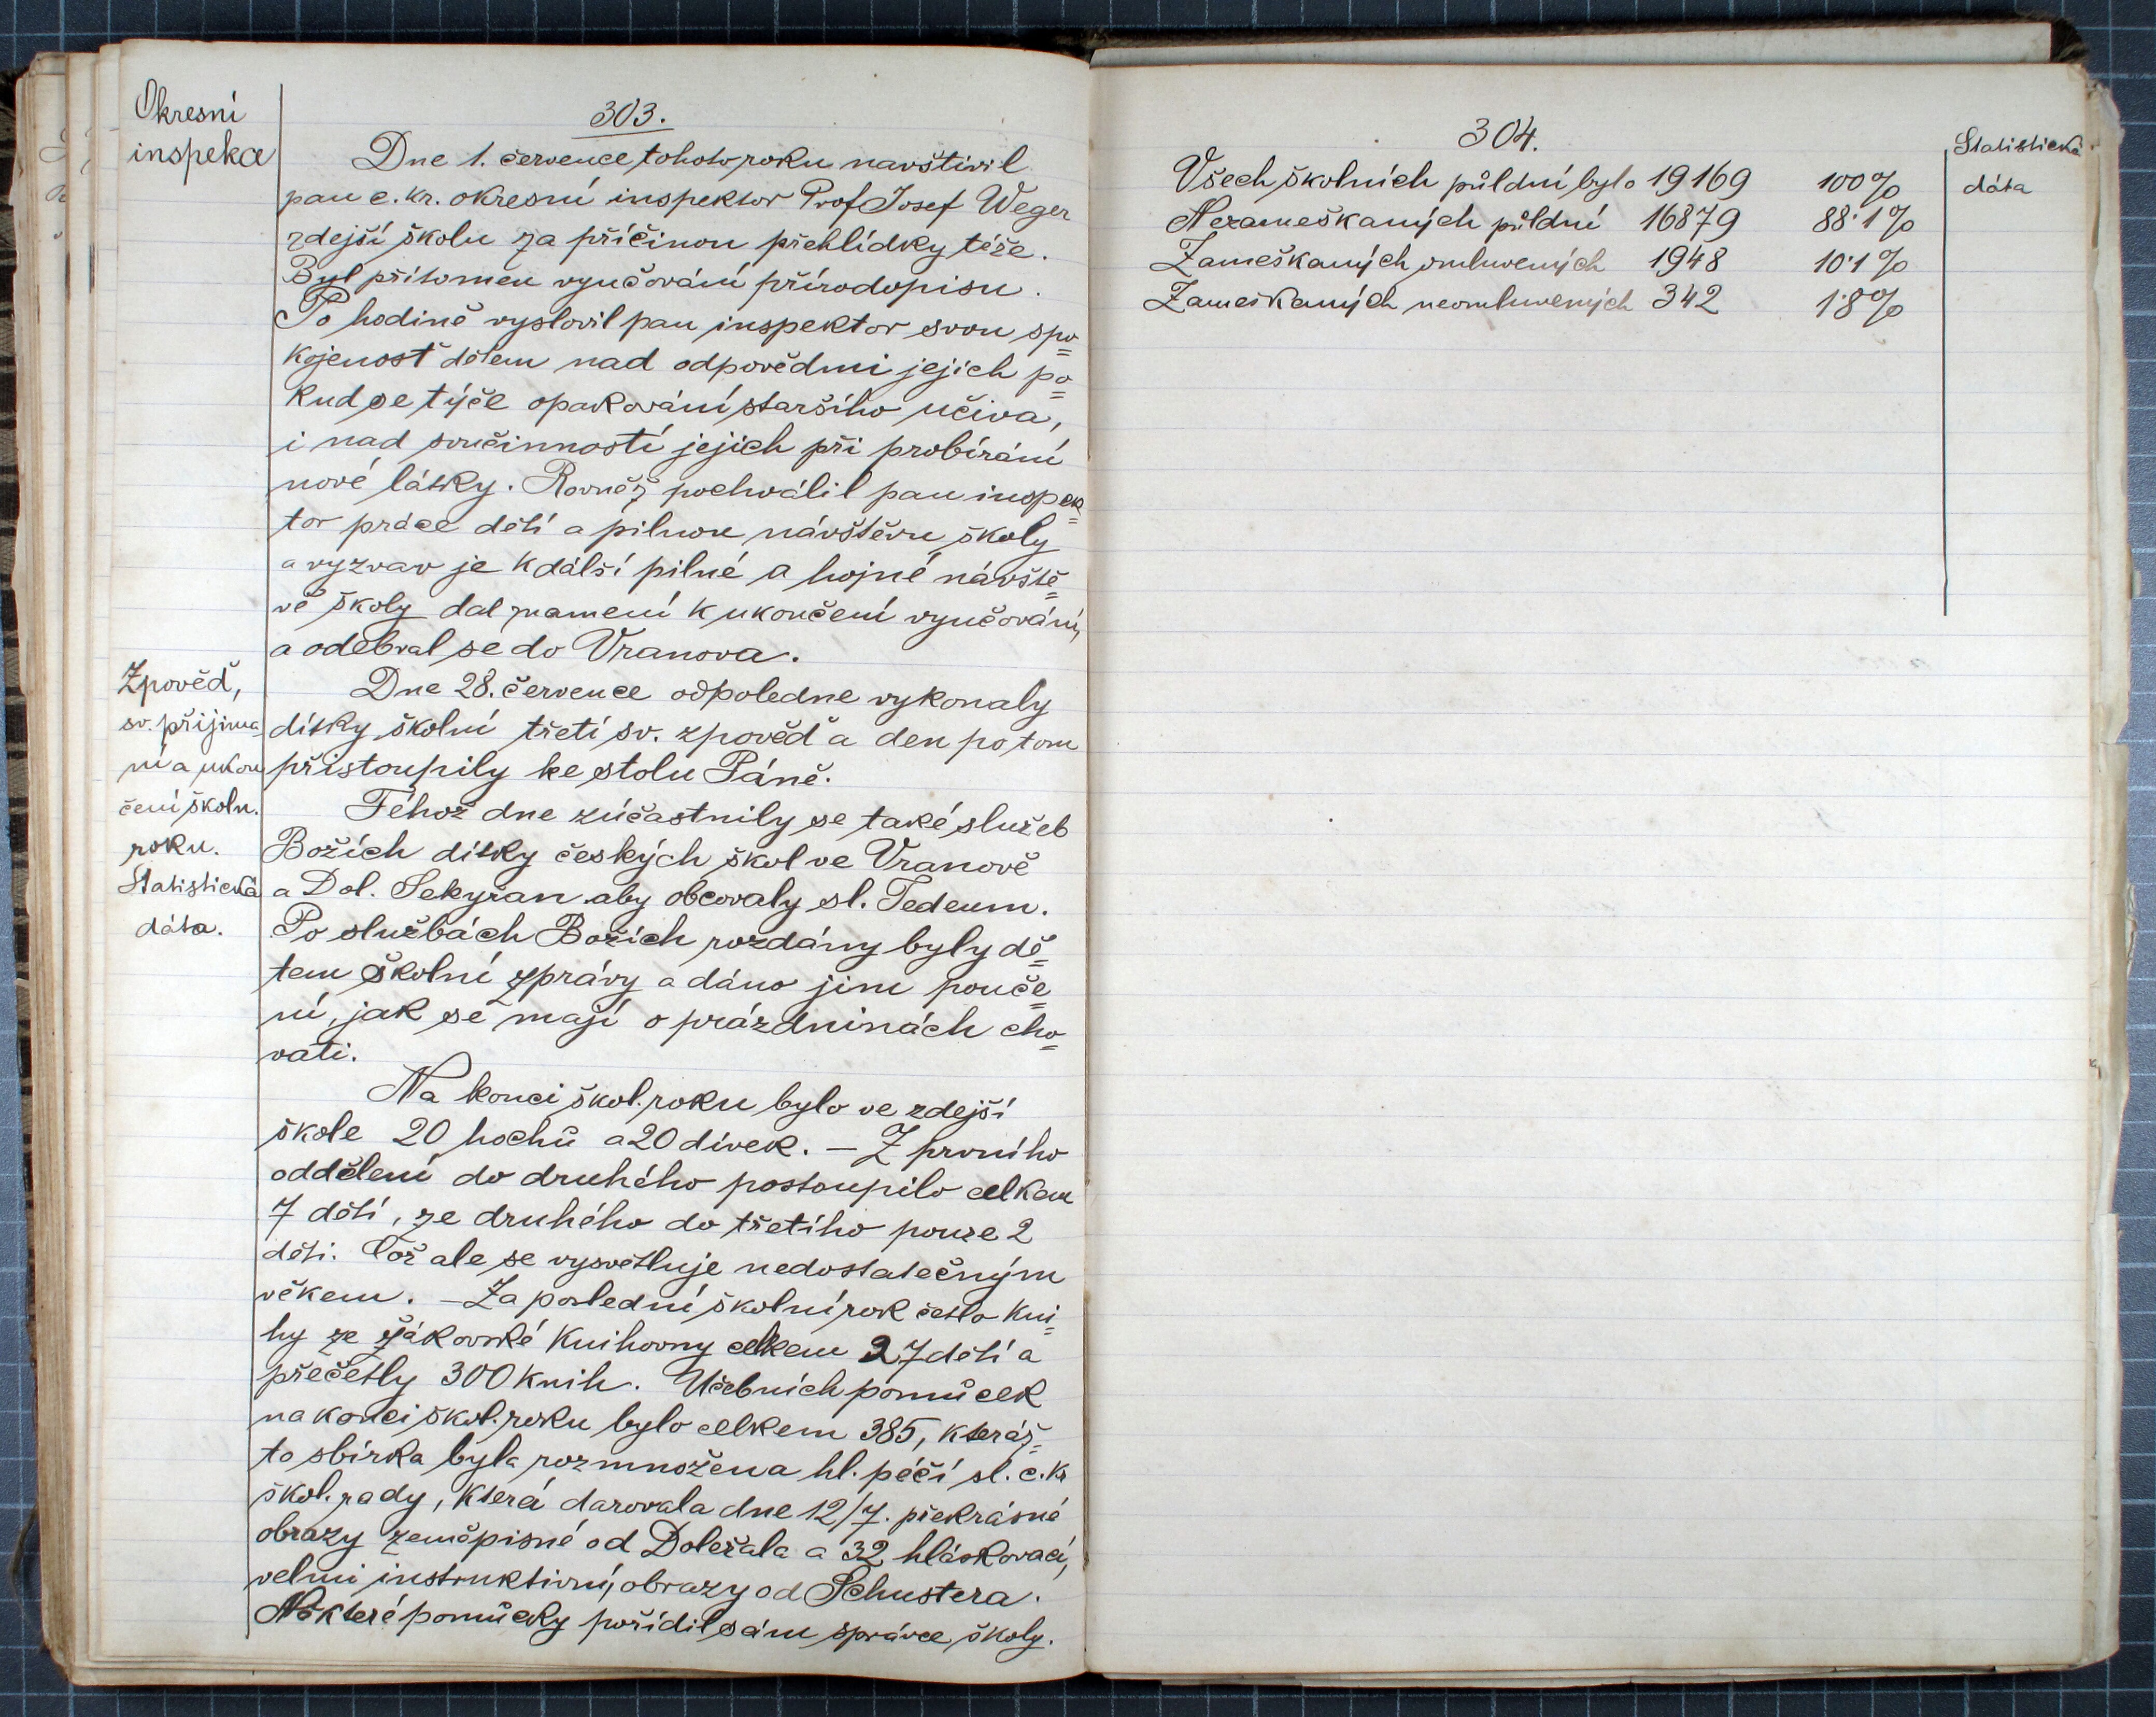 Okresní
inspekce
303.
Dne 1. července tohoto roku navštívil
pan c. kr. okresní inspektor Prof Josef Weger
zdejší školu za příčinou přehlídky téže.
Byl přítomen vyučování přírodopisu.
Po hodině vyslovil pan inspektor svou spo=
kojenosť dětem nad odpověďmi jejich po=
kud se týče opakování staršího učiva,
i nad součinností jejich při probírání
nové látky. Rovněž pochválil pan inspek=
tor práce dětí a pilnou návštěvu školy
a vyzvav je k dálší pilné a hojné návště=
vě školy dal znamení k ukončení vyučování,
a odebral se do Vranova.
Zpověď,
sv. přijímá
ní a ukon
čení školn.
roku.
Statistická
dáta.
Dne 28. července odpoledne vykonaly
dítky školní třetí sv. zpověď a den po tom
přistoupily ke stolu Páně.
Téhož dne zúčastnily se také služeb
Božích dítky českých škol ve Vranově
a Dol. Sekyřan aby obcovaly sl. Tedeum.
Po službách Božích rozdány byly dě=
tem školní zprávy a dáno jim pouče=
ní, jak se mají o prázdninách cho=
vati.
Na konci škol. roku bylo ve zdejší
škole 20 hochů a 20 dívek. — Z prvního
oddělení do druhého postoupilo celkem
7 dětí, ze druhého do třetího pouze 2
děti. Což ale se vysvětluje nedostatečným
věkem. — Za poslední školní rok četlo kni=
hy ze žákovské knihovny celkem 27 dětí a
přečetly 300 knih. Učebních pomůcek
na konci škol. roku bylo celkem 385, kteráž=
to sbírka byla rozmnožena hl. péčí sl. c. kr
škol. rady, která darovala dne 12/7. překrásné
obrazy zeměpisné od Doležala a 32 hláskovací,
velmi instruktivní, obrazy od Schustera.
Některé pomůcky pořídil sám správce školy.
304.
Statistická
dáta
Všech školních půldní bylo 19169 100%
Nezameškaných půldní 16879 88·1%
Zameškaných omluvených 1948 10·1%
Zameškaných neomluvených 342 1·8%